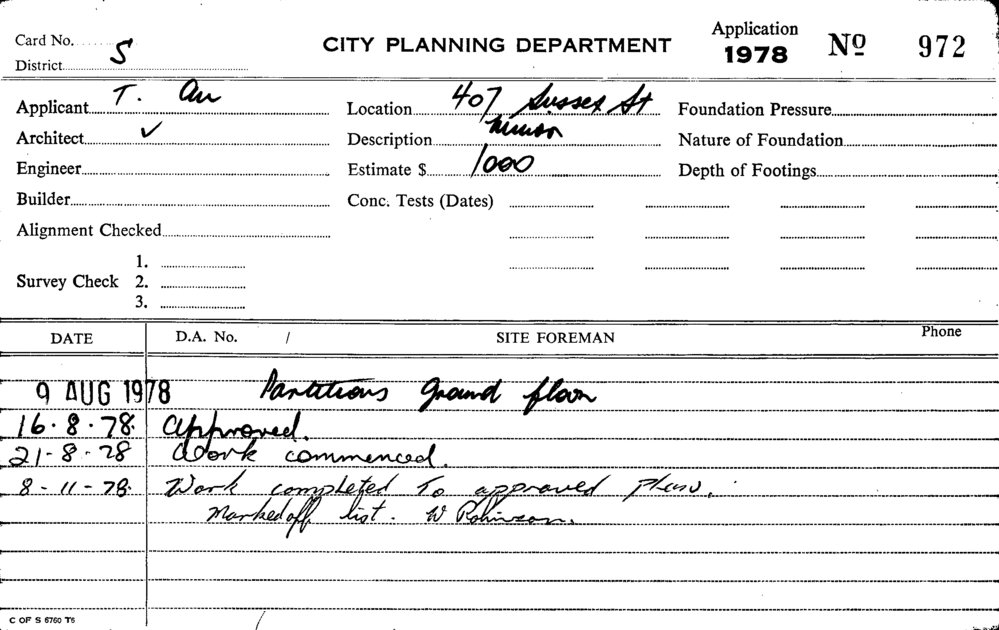 Card No. S CITY PLANNING DEPARTMENT Application 1978 Nº 972
District
Applicant T. Au Location 407 Sussex St Foundation Pressure
Architect ✓ Description Minor Nature of Foundation
Engineer Estimate $ 1000 Depth of Footings
Builder Conc. Tests (Dates)
Alignment Checked
Survey Check 1.
2.
3.
DATE D.A. No. / SITE FOREMAN Phone
9 AUG 1978 Partitions ground floor
16.8.78. Approved.
21-8-78 Work commenced.
8-11-78. Work completed to approved plans.
Marked off list. W Robinson.
C OF S 6760 T5